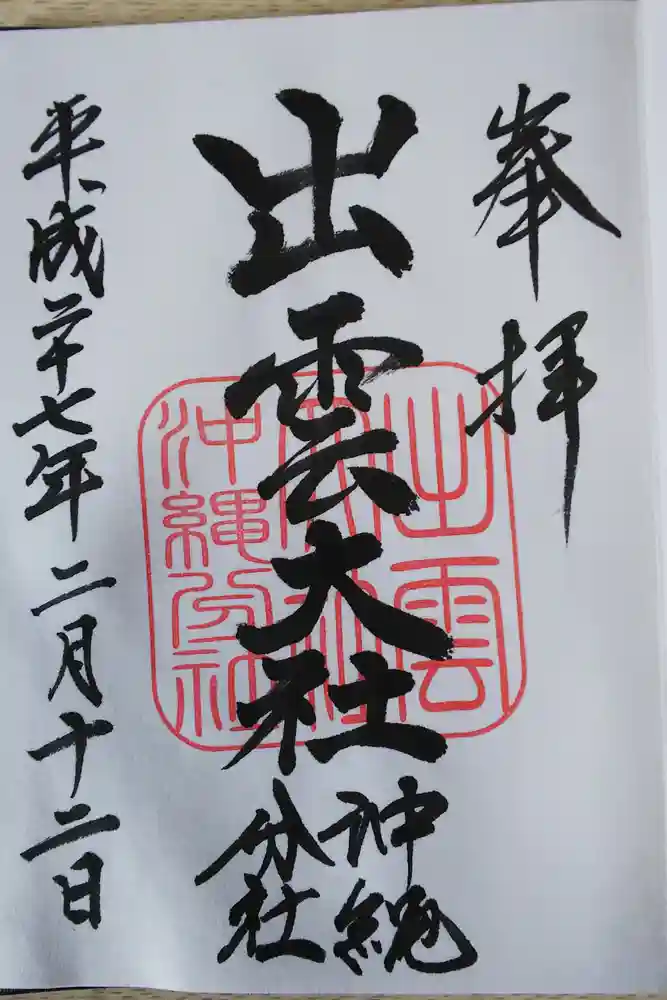 奉拝
出雲大社
沖縄
分社
平成二十七年二月十二日
出雲
大社
沖縄分社